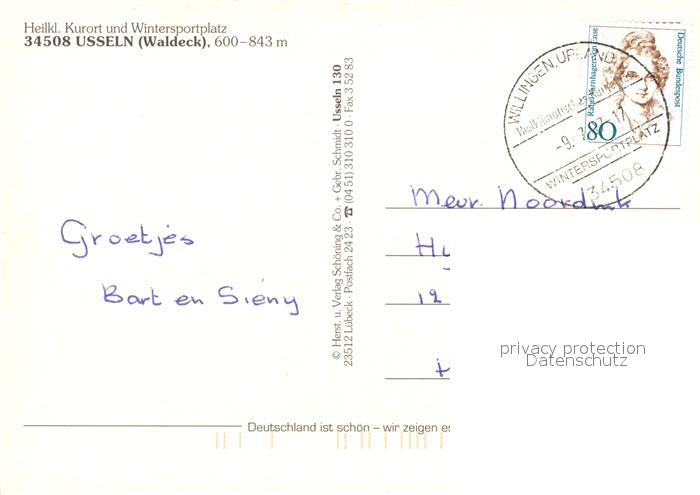 Heilkl. Kurort und Wintersportplatz
34508 USSELN (Waldeck), 600–843 m
Groetjes
Bart en Siény
© Herst. u. Verlag Schöning & Co. + Gebr. Schmidt · Usseln 130
23512 Lübeck · Postfach 24 23 · ☎ (04 51) 310 310 0 · Fax 3 52 83
Deutsche Bundespost
Rahel Varnhagen von Ense
80
WILLINGEN, UPLAND
-9.
-17
WINTERSPORTPLATZ
34508
Mevr. Noordink
12
privacy protection
Datenschutz
Deutschland ist schön – wir zeigen es